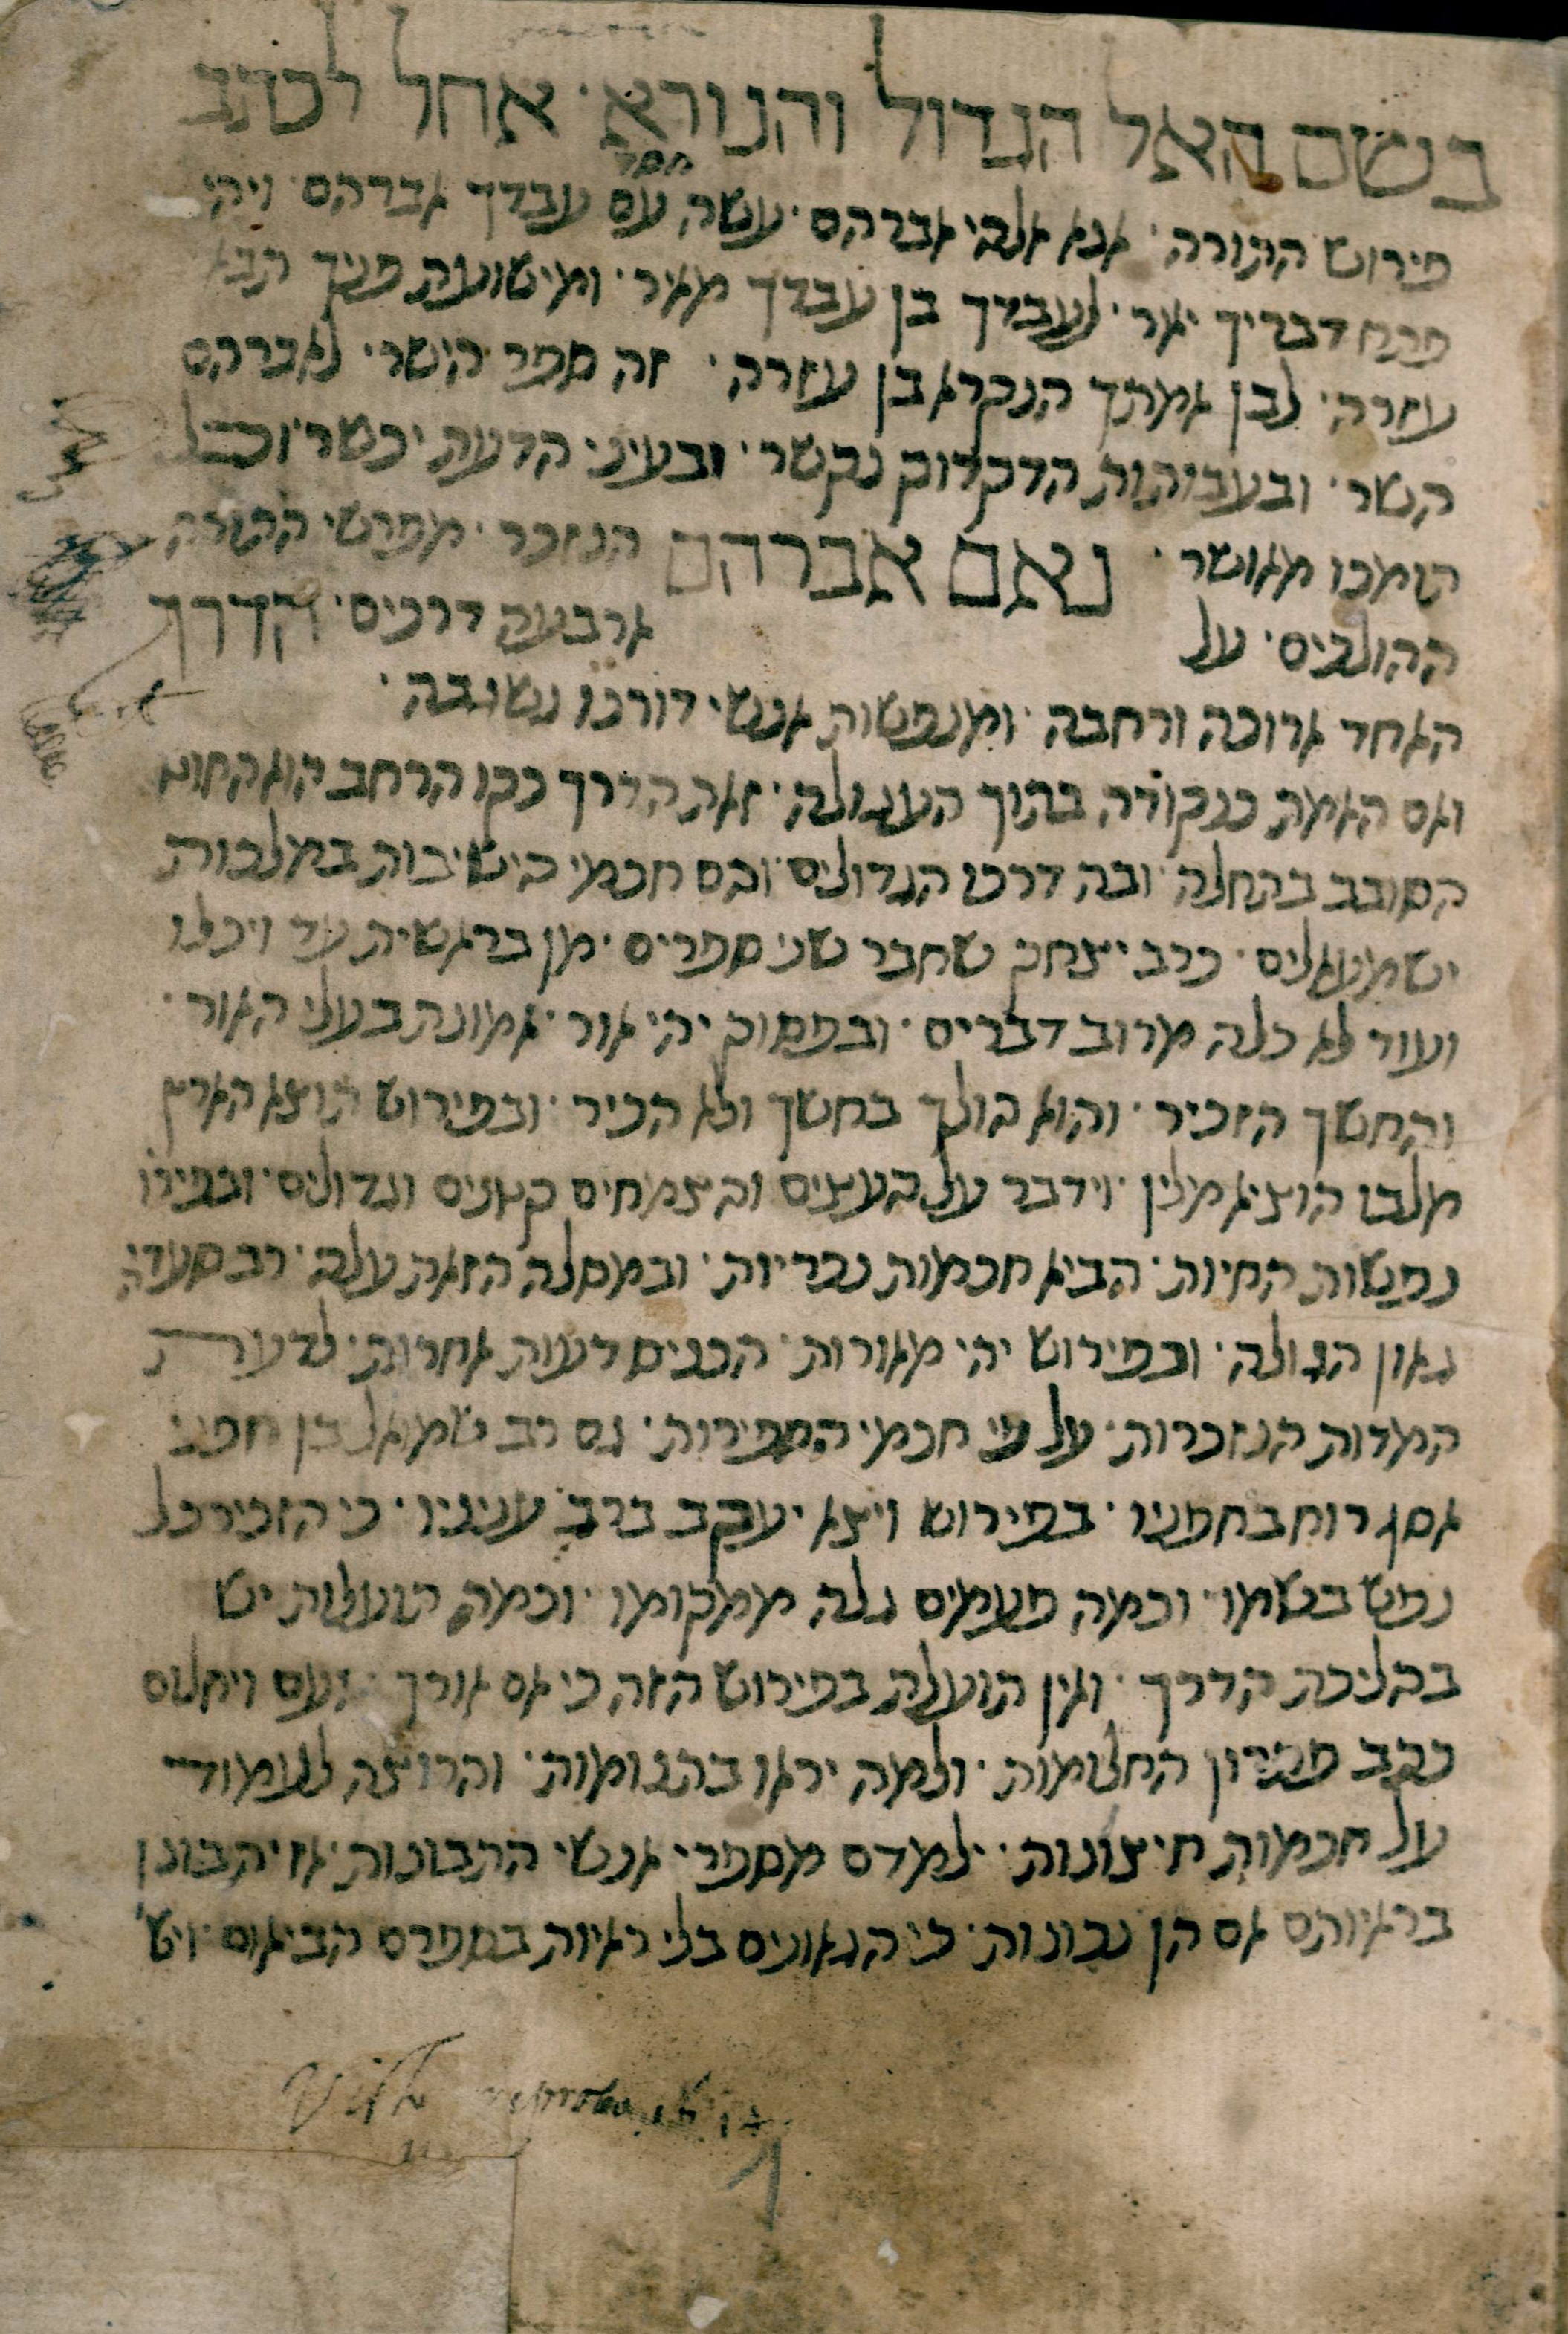 בשם האל הגדול והנורא · אחל לכתב
חסד
פירוש התורה · אנא אלהי אברהם · עשה עם עבדך אברהם · ויהי
פתח דבריך יאיר · לעבדך בן עבדך מאיר · ומישועת פניך תבא
עזרה · לבן אמתך הנקרא בן עזרה · זה ספר הישר · לאברהם
השר · ובעבותות הדקדוק נקשר · ובעיני הדעת יכשר · וכל
תומכו מאושר · נאם אברהם הנזכר · מפרשי התורה
ההולכים · על ארבעה דרכים · הדרך
האחד ארוכה ורחבה · ומנפשות אנשי דורנו נשגבה ·
ואם האמת כנקודה בתוך העגולה · זאת הדרך כקו הרחב הוא החוט
הסובב בתחלה · ובה דרכו הגדולים · והם חכמי הישיבות במלכות
ישמעאלים · כרב יצחק שחבר שני ספרים · מן בראשית עד ויכלו
ועוד לא כלה מרוב דברים · ובפסוק יהי אור · אמונת בעלי האור ·
והחשך הזכיר · והוא הולך בחשך ולא הכיר · ובפירוש תוצא הארץ
מלבו הוציא מלין · וידבר על העצים והצמחים קטנים וגדולים · ובפירו
נפשות החיות · הביא חכמות נכריות · ובמסלה הזאת עלה · רב סעדיה
גאון הגולה · ובפירוש יהי מאורות · הכניס דעות אחרות · לדעת
המדות הנזכרות · על פי חכמי הספירות · גם רב שמואל בן חפני
אסף רוח בחפניו · בפירוש ויצא יעקב ברב עניניו · כי הזכיר כל
נפש בשמו · וכמה פעמים גלה ממקומו · וכמה תועלות יש
בהליכת הדרך · ואין תועלת בפירוש הזה כי אם אורך · ועם ויחלום
נקב פתרון החלומות · ולמה יראו בתנומות · והרוצה לעמוד
על חכמות חיצונות · ילמדם מספרי אנשי התבונות · אז יתבונן
בראיותם אם הן נכונות · כי הגאונים בלי ראיות בספרם הביאום · ויש
1